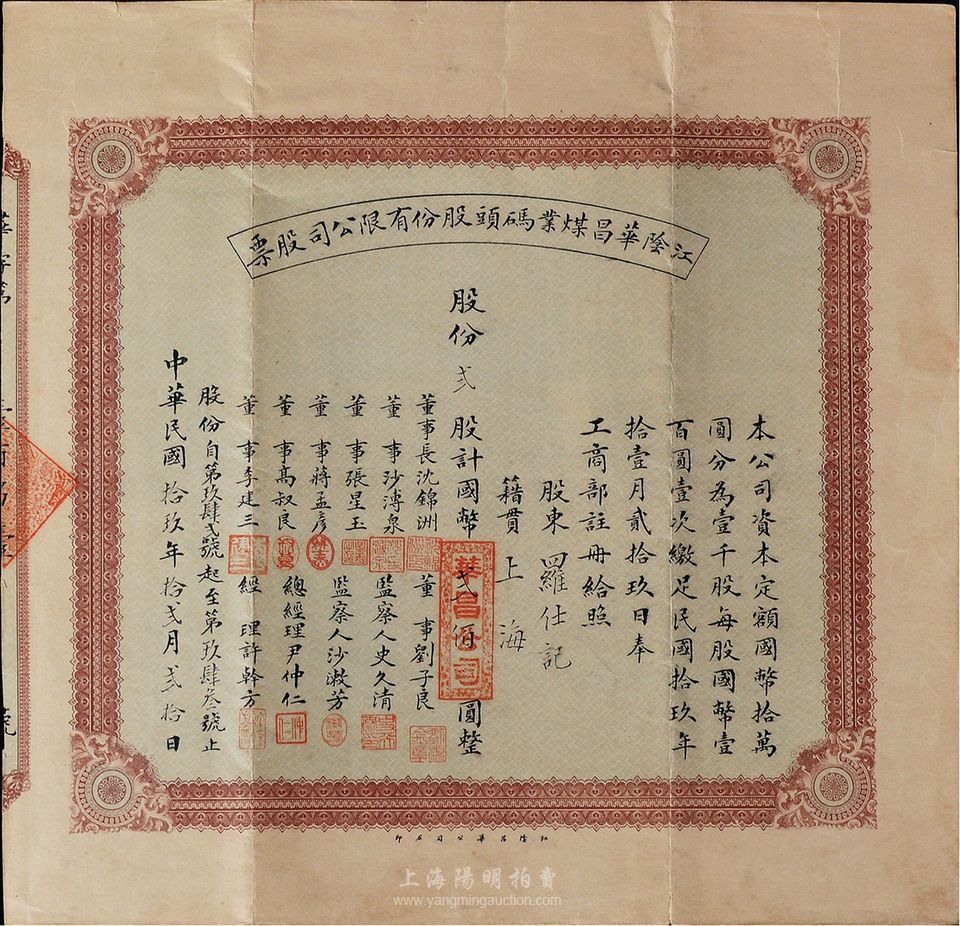 江陰華昌煤業碼頭股份有限公司股票
本公司資本定額國幣拾萬
圓分為壹千股每股國幣壹
百圓壹次繳足民國拾玖年
拾壹月貳拾玖日奉
工商部註冊給照
股東 羅仕記
籍貫 上海
股份 弍 股計國幣 弍佰 圓整
董事長沈錦洲 董事劉子良
董事沙溥泉 監察人史久清
董事張星玉 監察人沙淑芳
董事蔣孟彥 總經理尹仲仁
董事高叔良 經理許幹方
董事李建三
股份自第玖肆弍號起至第玖肆叁號止
中華民國拾玖年拾弍月弍拾日
上海陽明拍賣
www.yangmingauction.com